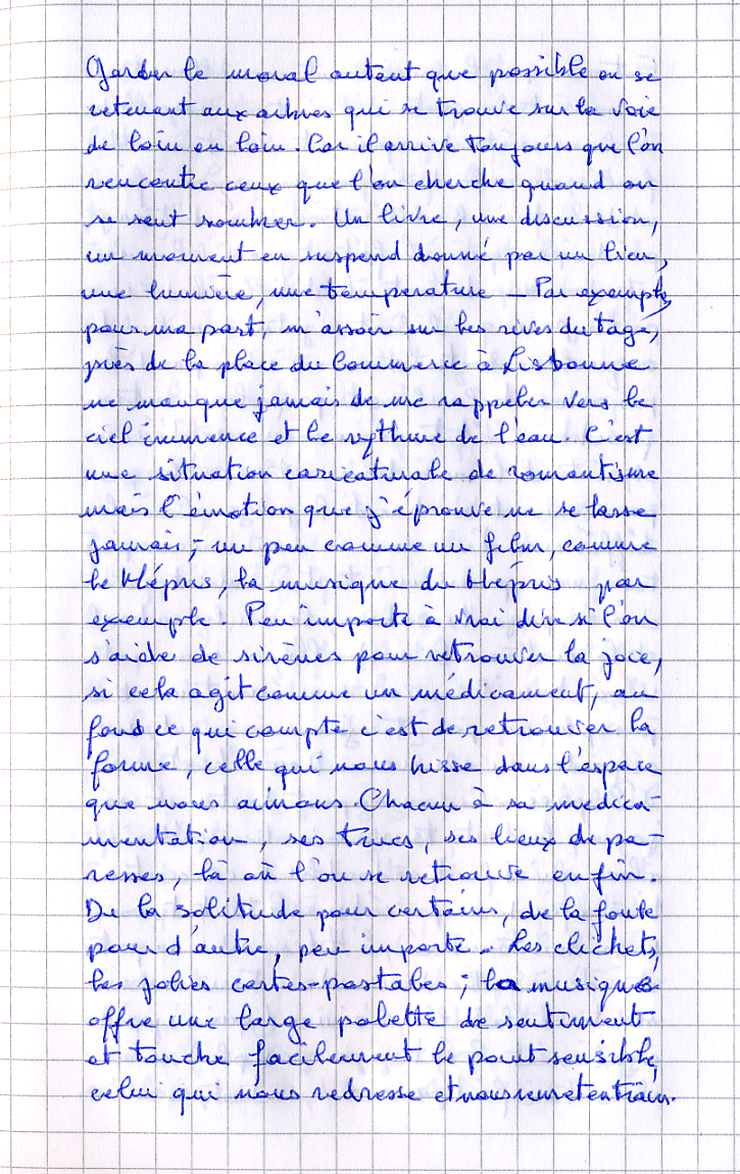 Garder le moral autant que possible en se
retenant aux arbres qui se trouve sur la voie
de loin en loin. Car il arrive toujours que l'on
rencontre ceux que l'on cherche quand on
se sent sombrer. Un livre, une discussion,
un moment en suspend donné par un lieu,
une lumière, une temperature — Par exemple,
pour ma part, m'assoir sur les rives du tage,
près de la place du Commerce à Lisbonne
ne manque jamais de me rappeler vers le
ciel immence et le rythme de l'eau. C'est
une situation caricaturale de romantisme
mais l'émotion que j'éprouve ne se lasse
jamais ; un peu comme un film, comme
le Mépris, la musique du Mépris par
exemple. Peu importe à vrai dire si l'on
s'aide de sirènes pour retrouver la joie,
si cela agit comme un médicament, au
fond ce qui compte c'est de retrouver la
forme, celle qui nous hisse dans l'espace
que nous aimons. Chacun à sa medica-
mentation, ses trucs, ses lieux de pa-
resses, là où l'on se retrouve enfin.
De la solitude pour certains, de la foule
pour d'autre, peu importe. Les clichets,
les jolies cartes-postales ; la musique
offre une large palette de sentiment
et touche facilement le point sensible,
celui qui nous redresse et nous remet en train.